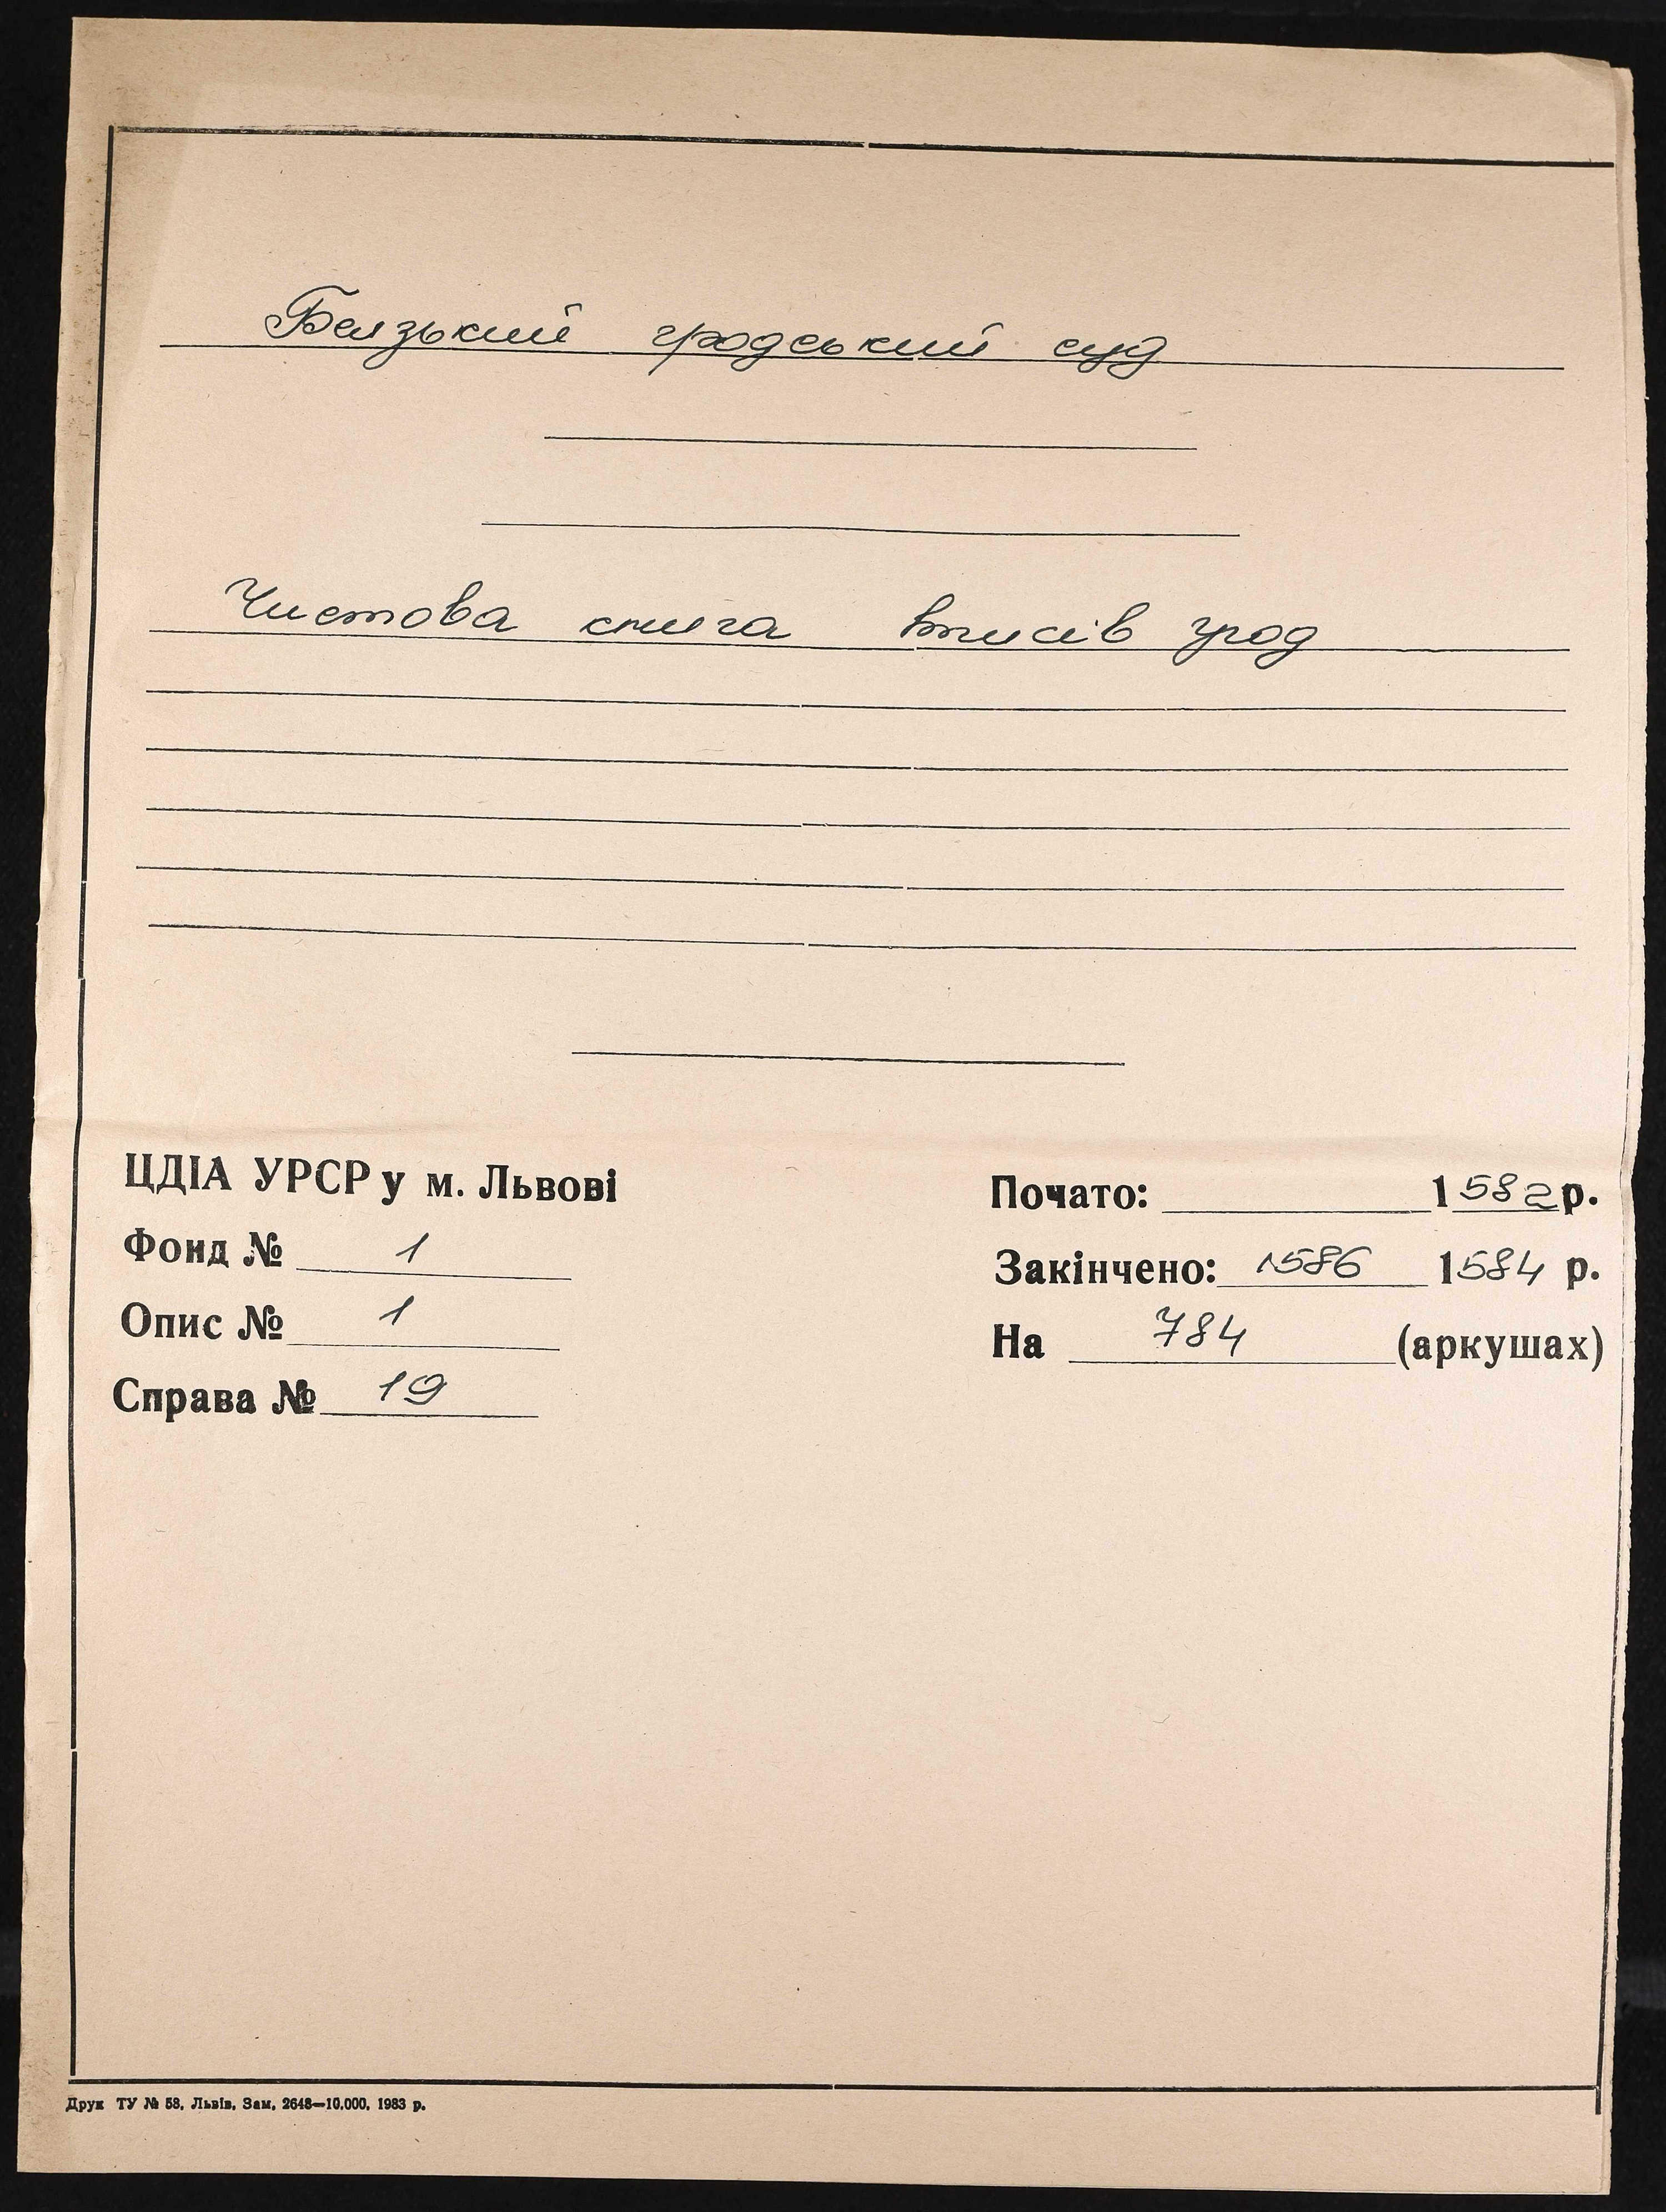 Белзький гродський суд
Чистова книга вписів угод
ЦДІА УРСР у м. Львові
Фонд № 1
Опис № 1
Справа № 19
Почато: 1582 р.
Закінчено: 1586 1584 р.
На 784 (аркушах)
Друк ТУ № 58, Львів, Зам. 2648—10.000. 1983 р.